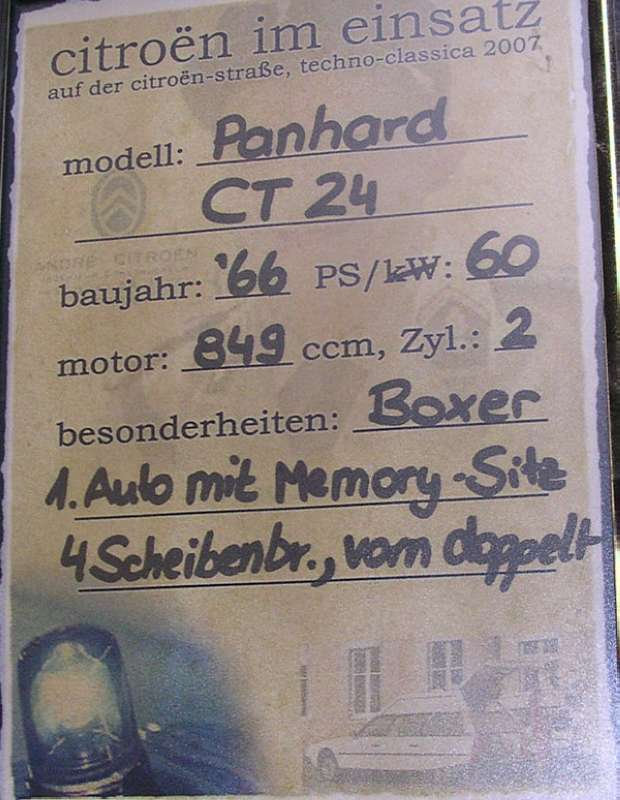 citroën im einsatz
auf der citroën-straße, techno-classica 2007
modell: Panhard
CT 24
ANDRÉ CITROËN
baujahr: '66 PS/kW: 60
motor: 849 ccm, Zyl.: 2
besonderheiten: Boxer
1. Auto mit Memory-Sitz
4 Scheibenbr., vorn doppelt